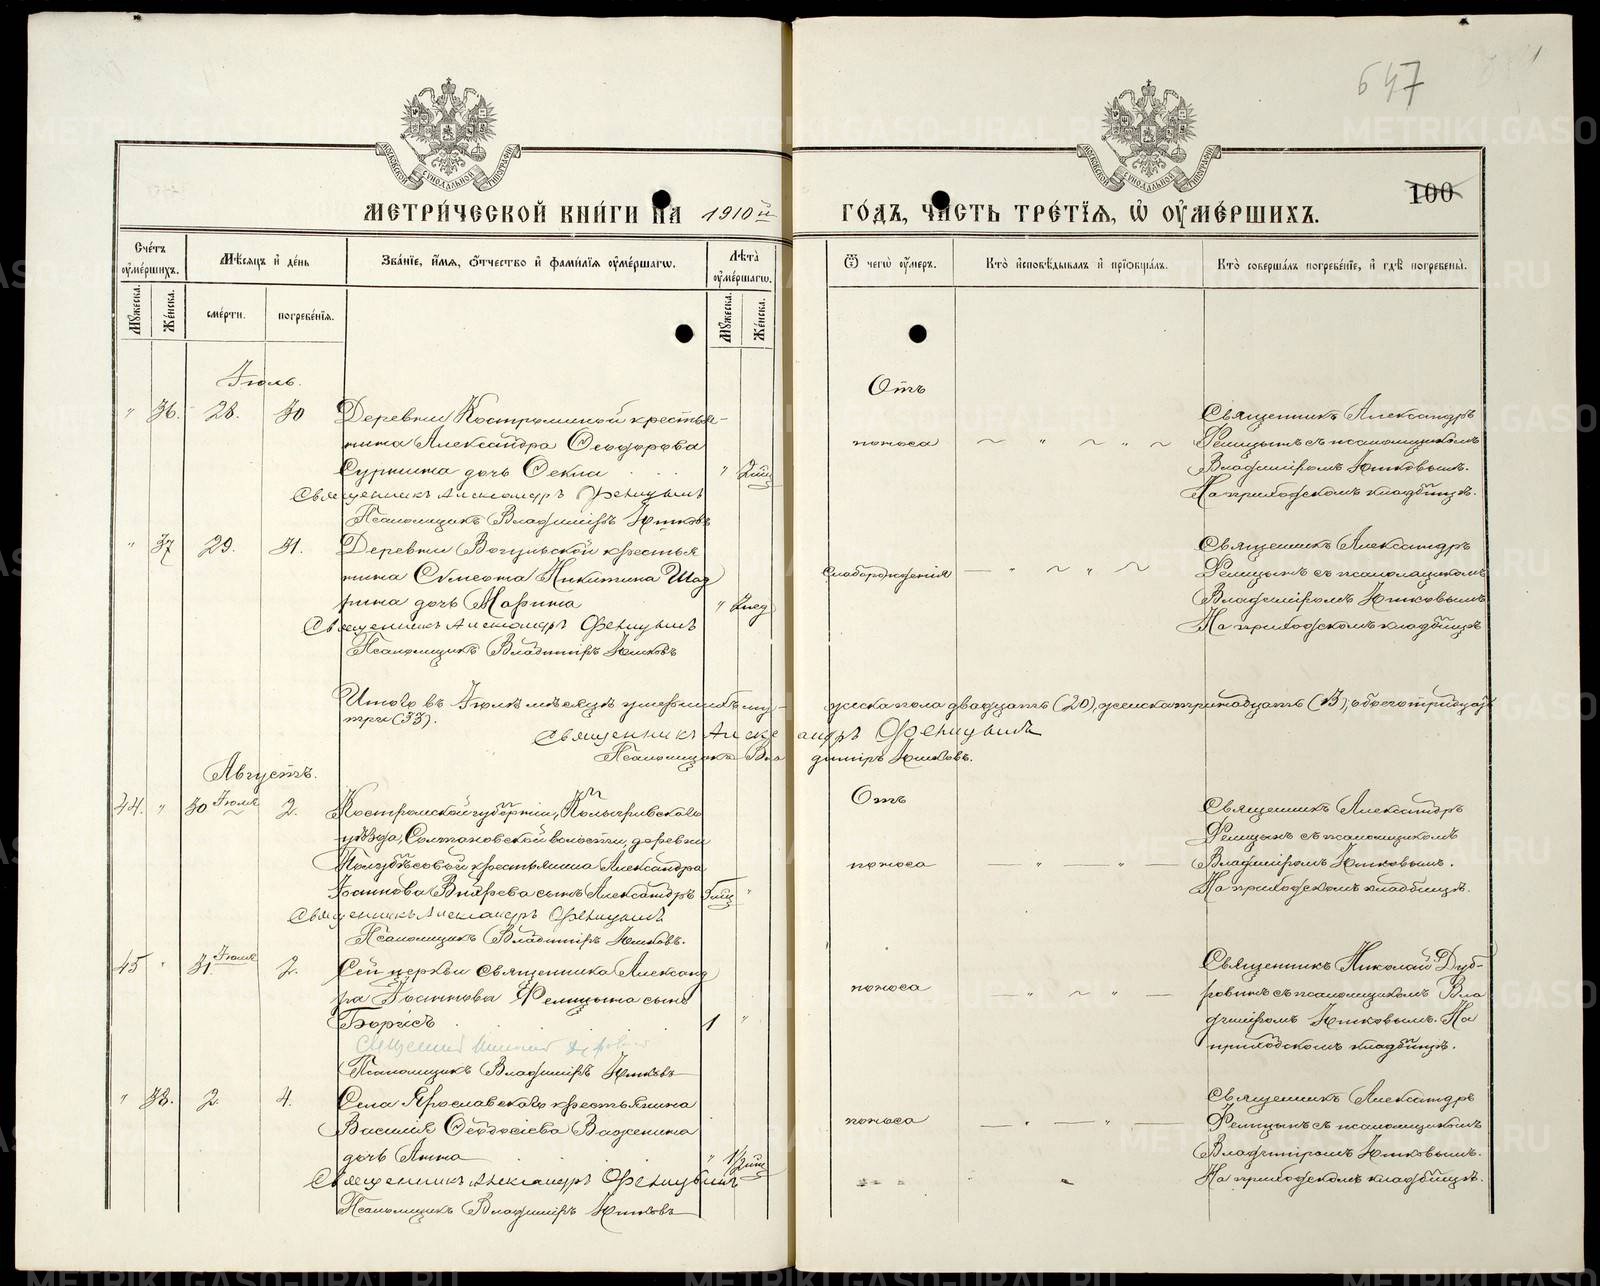 647
100
МЕТРИ́ЧЕСКОЙ КНИ́ГИ НА 1910й ГО́ДЪ, ЧА́СТЬ ТРЕ́ТІЯ, Ѡ ОУМЕ́РШИХЪ.
Сче́тъ оуме́ршихъ.
Мꙋжеска.
Же́нска.
Мѣ́сяцъ и де́нь
сме́рти.
погребе́нія.
Зва́ніе, и́мя, ѻ́тчество и фами́лія оуме́ршагѡ.
Лѣ́та оуме́ршагѡ.
Мꙋжеска.
Же́нска.
Ѿ чегѡ̀ оу́меръ.
Кто̀ исповѣ́дывалъ и пріѡбща́лъ.
Кто̀ соверша́лъ погребе́ніе, и гдѣ̀ погребены̀.
Іюль.
" 36. 28. 30
Деревни Костроминой крестья-
нина Александра Ѳеодорова
Сурнина дочь Ѳекла
Священникъ Александръ Феницынъ
Псаломщикъ Владиміръ Юшковъ
Отъ
поноса
Священникъ Александръ
Феницынъ съ псаломщикомъ
Владиміромъ Юшковымъ.
На приходскомъ кладбищѣ.
" 37 29. 31.
Деревни Вогульской крестья
нина Сѵмеона Никитина Шад
рина дочь Марина
" 2нед
Священникъ Александръ Феницынъ
Псаломщикъ Владиміръ Юшковъ
Слаборожденія
Священникъ Александръ
Феницынъ съ псаломщикомъ
Владиміромъ Юшковымъ
На приходскомъ кладбищѣ
Итого въ Іюлѣ мѣсяцѣ умершихъ му-
жеска пола двадцать (20), женска тринадцать (13), обоего тридцать
три (33).
Священникъ Александръ Феницынъ
Псаломщикъ Владиміръ Юшковъ.
Августъ.
44. " 30 Іюля 2.
Костромской губерніи, Кологривскаго
уѣзда, Солтановской волости, деревни
крестьянина Александра
Іоаннова сынъ Александръ
Священникъ Александръ Феницынъ
Псаломщикъ Владиміръ Юшковъ.
Отъ
поноса
Священникъ Александръ
Феницынъ съ псаломщикомъ
Владиміромъ Юшковымъ.
На приходскомъ кладбищѣ.
45 " 31. Іюля 2.
Сей церкви священника Александ
ра Іоаннова Феницына сынъ
Борисъ
1 "
Псаломщикъ Владиміръ Юшковъ
поноса
Священникъ Николай Дуб-
ровинъ съ псаломщикомъ Вла
диміромъ Юшковымъ. На
приходскомъ кладбищѣ.
" 38. 2. 4.
Села Ярославскаго крестьянина
Василія Ѳеодосіева Важенина
дочь Анна
Священникъ Александръ Феницынъ
Псаломщикъ Владиміръ Юшковъ
поноса
Священникъ Александръ
Феницынъ съ псаломщикомъ
Владиміромъ Юшковымъ.
На приходскомъ кладбищѣ.
METRIKI.GASO-URAL.RU